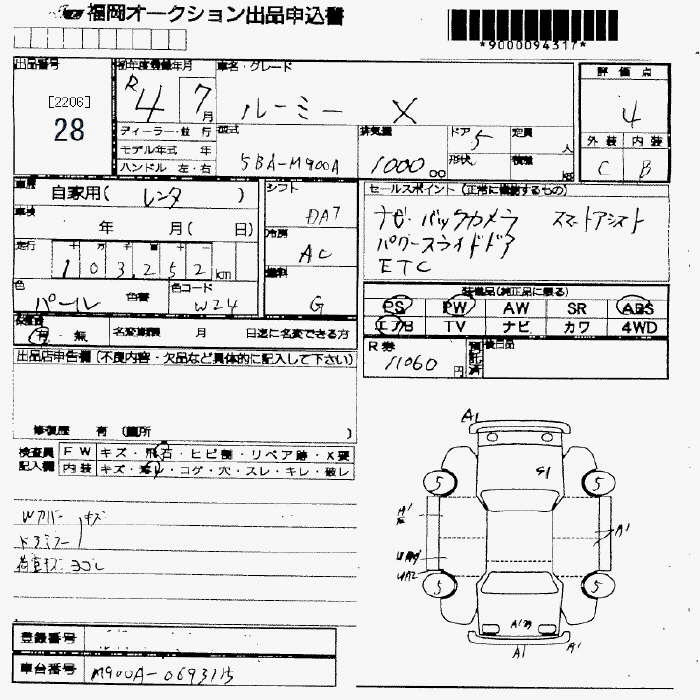 福岡オークション出品申込書
*9000094317*
出品番号
[2206]
28
初年度登録年月
R4 7月
ディーラー・並行
モデル年式 年
ハンドル 左・右
車名・グレード
ルーミー X
型式
5BA-M900A
排気量
1000 cc
ドア 5
形状
定員 人
積量 kg
評価点
4
外装 内装
C B
車歴 自家用(レンタ)
車検 年 月( 日)
走行
103,252 km
色 パール 色替
色コード W24
シフト DAT
冷房 AC
燃料 G
セールスポイント(正常に機能するもの)
ナビ・バックカメラ スマートアシスト
パワースライドドア
ETC
装備品(純正品に限る)
PS PW AW SR ABS
エアB TV ナビ カワ 4WD
保証書 有・無
名変期限 月 日迄に名変できる方
R券 11060円
後日品
出品店申告欄(不良内容・欠品など具体的に記入して下さい)
修復歴 有(箇所 )
検査員記入欄
FW キズ・飛石・ヒビ割・リペア跡・X要
内装 キズ・汚れ・コゲ・穴・スレ・キレ・破レ
Wカバー キズ
ドアミラー
荷室キズ ヨゴレ
登録番号
車台番号 M900A-0693115
A1
G1
5 5
A1
5 5
A1
A1